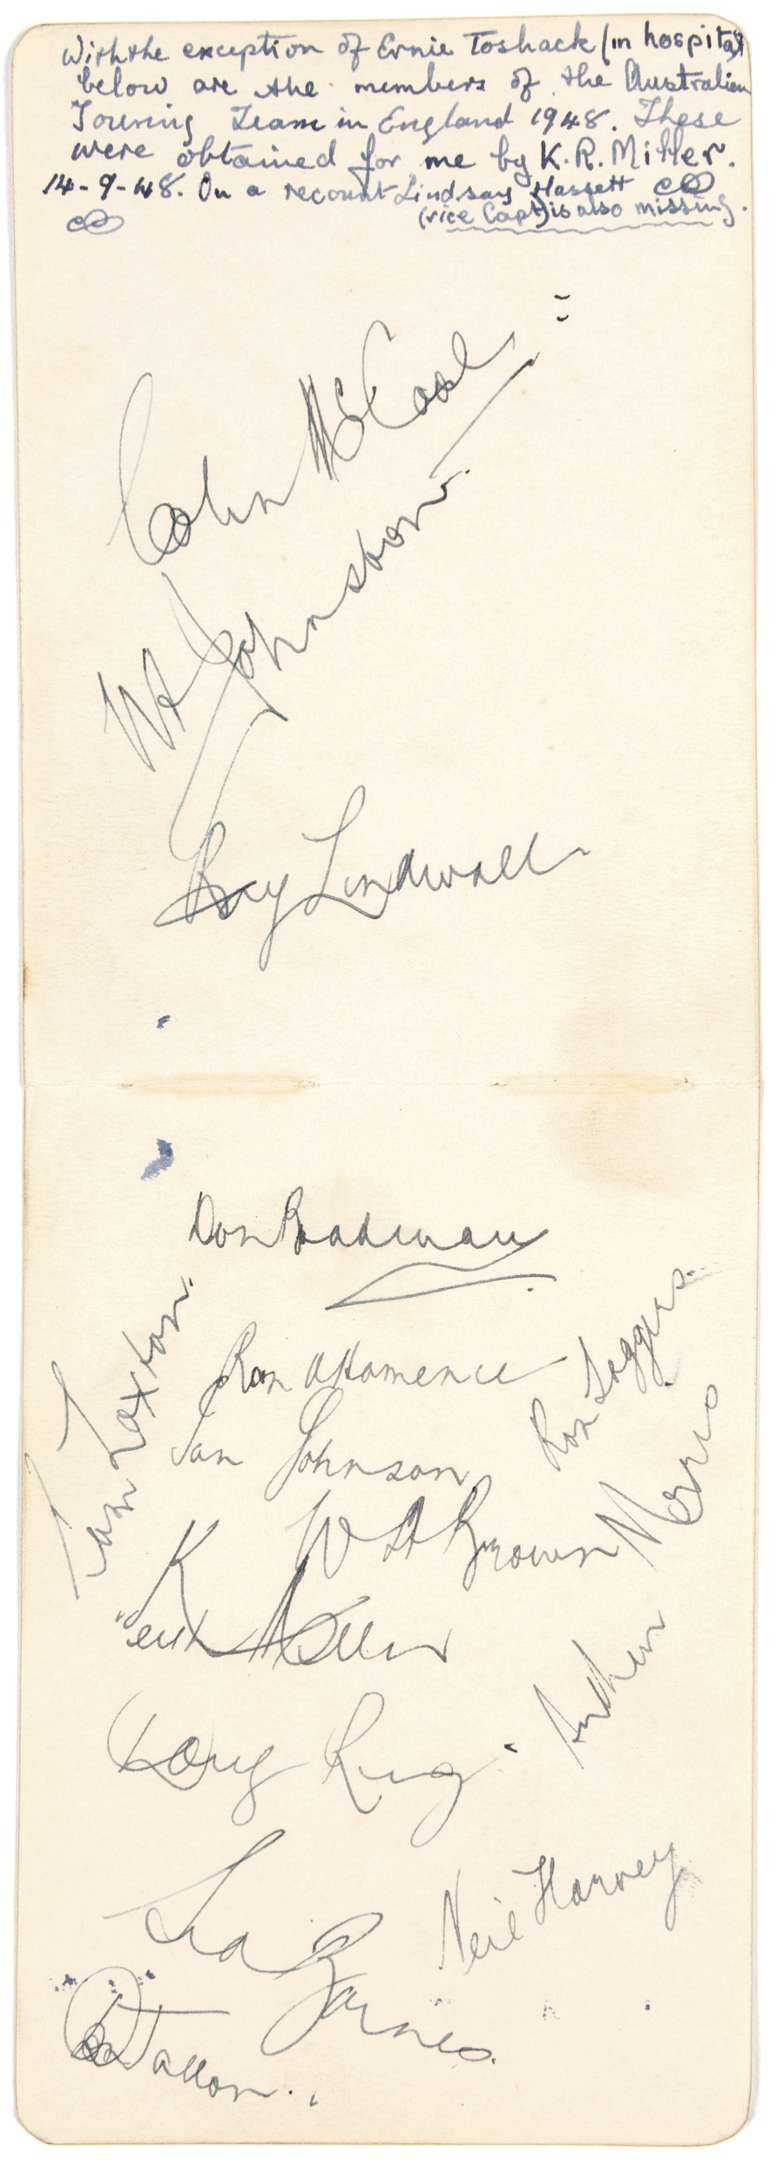 With the exception of Ernie Toshack (in hospital)
below are the members of the Australian
Touring Team in England 1948. These
were obtained for me by K.R. Miller.
14-9-48. On a recount Lindsay Hassett
(vice Capt) is also missing.
Colin McCool
WA Johnston
Ray Lindwall
Don Bradman
Sam Loxton.
Ron A Hamence
Ron Saggers.
Ian Johnson
WA Brown
Arthur Morris
Keith Miller
Doug Ring.
Neil Harvey
Sid Barnes.
Don Tallon.